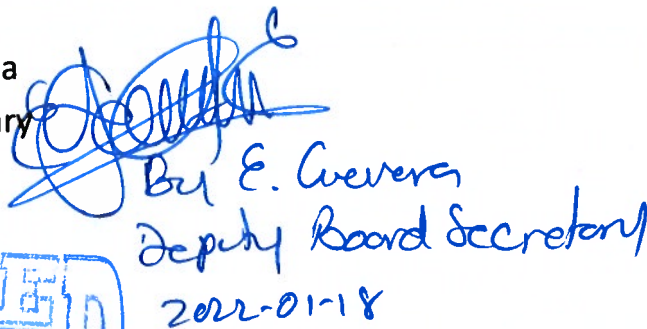 a
ary
By E. Cuevera
Deputy Board Secretary
2022-01-18